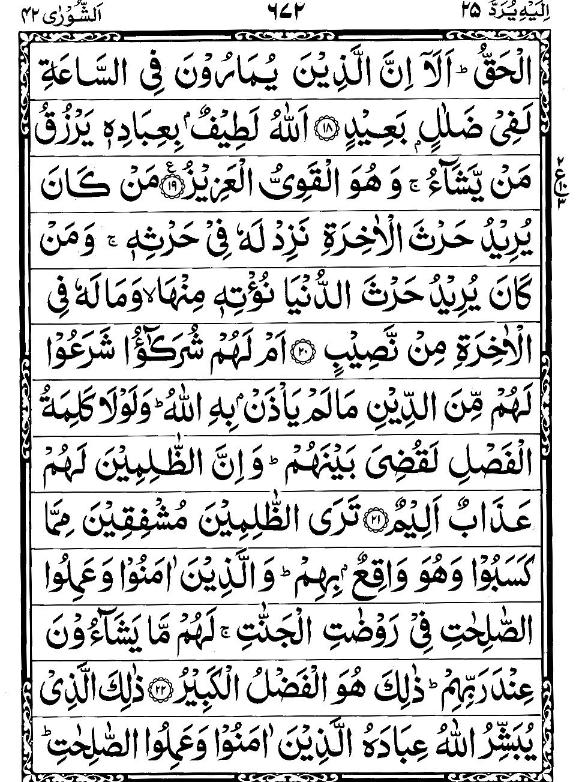 اِلَيْهِ يُرَدُّ ٢٥ ٦٧٢ اَلشُّوْرٰى ٤٢
الْحَقُّ ؕ اَلَاۤ اِنَّ الَّذِيْنَ يُمَارُوْنَ فِى السَّاعَةِ
لَفِىْ ضَلٰلٍۭ بَعِيْدٍ ۝١٨ اَللّٰهُ لَطِيْفٌۢ بِعِبَادِهٖ يَرْزُقُ
مَنْ يَّشَآءُ ۚ وَ هُوَ الْقَوِىُّ الْعَزِيْزُ ۝١٩ ع مَنْ كَانَ
يُرِيْدُ حَرْثَ الْاٰخِرَةِ نَزِدْ لَهٗ فِىْ حَرْثِهٖ ۚ وَمَنْ
كَانَ يُرِيْدُ حَرْثَ الدُّنْيَا نُؤْتِهٖ مِنْهَا ۙ وَمَا لَهٗ فِى
الْاٰخِرَةِ مِنْ نَّصِيْبٍ ۝٢٠ اَمْ لَهُمْ شُرَكٰٓؤُا شَرَعُوْا
لَهُمْ مِّنَ الدِّيْنِ مَا لَمْ يَاْذَنْۢ بِهِ اللّٰهُ ؕ وَلَوْلَا كَلِمَةُ
الْفَصْلِ لَقُضِىَ بَيْنَهُمْ ؕ وَاِنَّ الظّٰلِمِيْنَ لَهُمْ
عَذَابٌ اَلِيْمٌ ۝٢١ تَرَى الظّٰلِمِيْنَ مُشْفِقِيْنَ مِمَّا
كَسَبُوْا وَهُوَ وَاقِعٌۢ بِهِمْ ؕ وَالَّذِيْنَ اٰمَنُوْا وَعَمِلُوا
الصّٰلِحٰتِ فِىْ رَوْضٰتِ الْجَنّٰتِ ۚ لَهُمْ مَّا يَشَآءُوْنَ
عِنْدَ رَبِّهِمْ ؕ ذٰلِكَ هُوَ الْفَضْلُ الْكَبِيْرُ ۝٢٢ ذٰلِكَ الَّذِىْ
يُبَشِّرُ اللّٰهُ عِبَادَهُ الَّذِيْنَ اٰمَنُوْا وَعَمِلُوا الصّٰلِحٰتِ ؕ